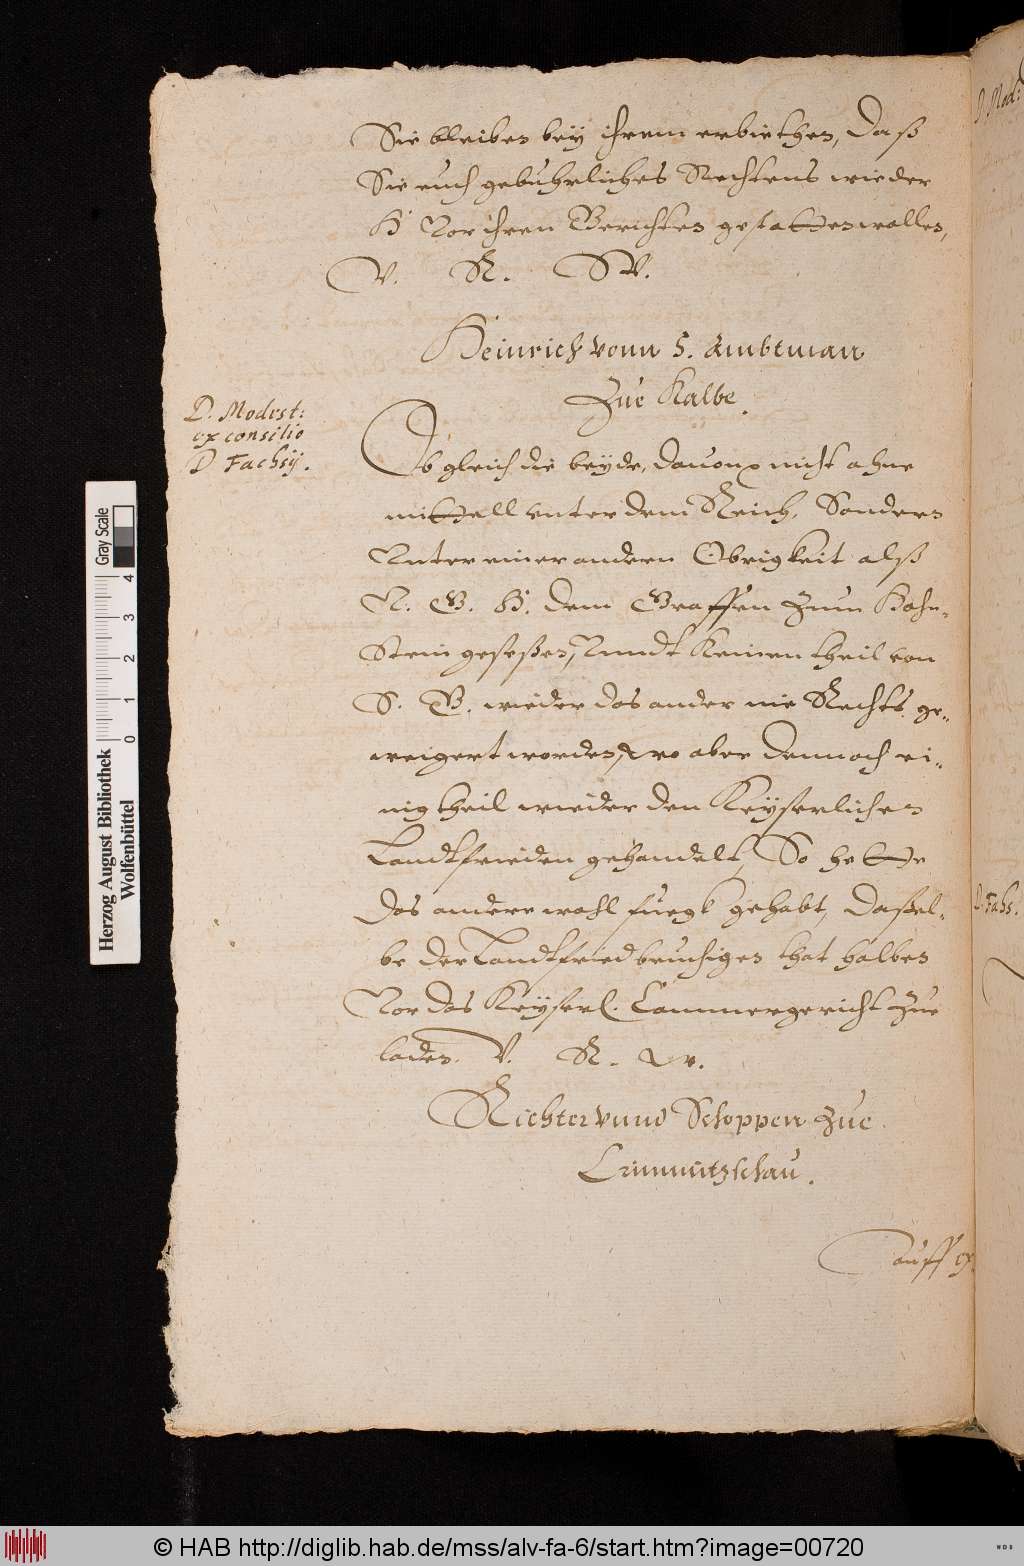 Sie bleiben bey ihrem erbiethen, Daß
Sie euch gebuhrliches Rechtens wieder
H Vor ihren Gerichten gestatten wollen,
V. R. W.
Heinrich vonn S. Ambtman
Zue Kalbe.
D. Modest:
ex consilio
D Fachsij.
Ob gleich die beyde, dauon nicht ahne
mittell vnter dem Reich, Sondern
Vnter einer andern Obrigkeit alß
N. G. H. dem Graffen zum Hohn-
Stein geseßen, Vnndt keinen theil von
S. G. wieder das ander nie Rechts ge-
weigert worden, wo aber dennoch ei-
nig theil wieder den Keyserlichen
Landtfrieden gehandelt, So hette
das andere wohl fuegk gehabt, Daßel-
be der Landtfriedbruchigen that halben
Vor das Keyserl. Cammergericht zue
laden. V. R. W.
Richter vnnd Schoppen zue
Crimmitzschau.
auff
D. Mod:
D. Fahs.
Herzog August Bibliothek
Wolfenbüttel
0 1 2 3 4
Gray Scale
© HAB http://diglib.hab.de/mss/alv-fa-6/start.htm?image=00720